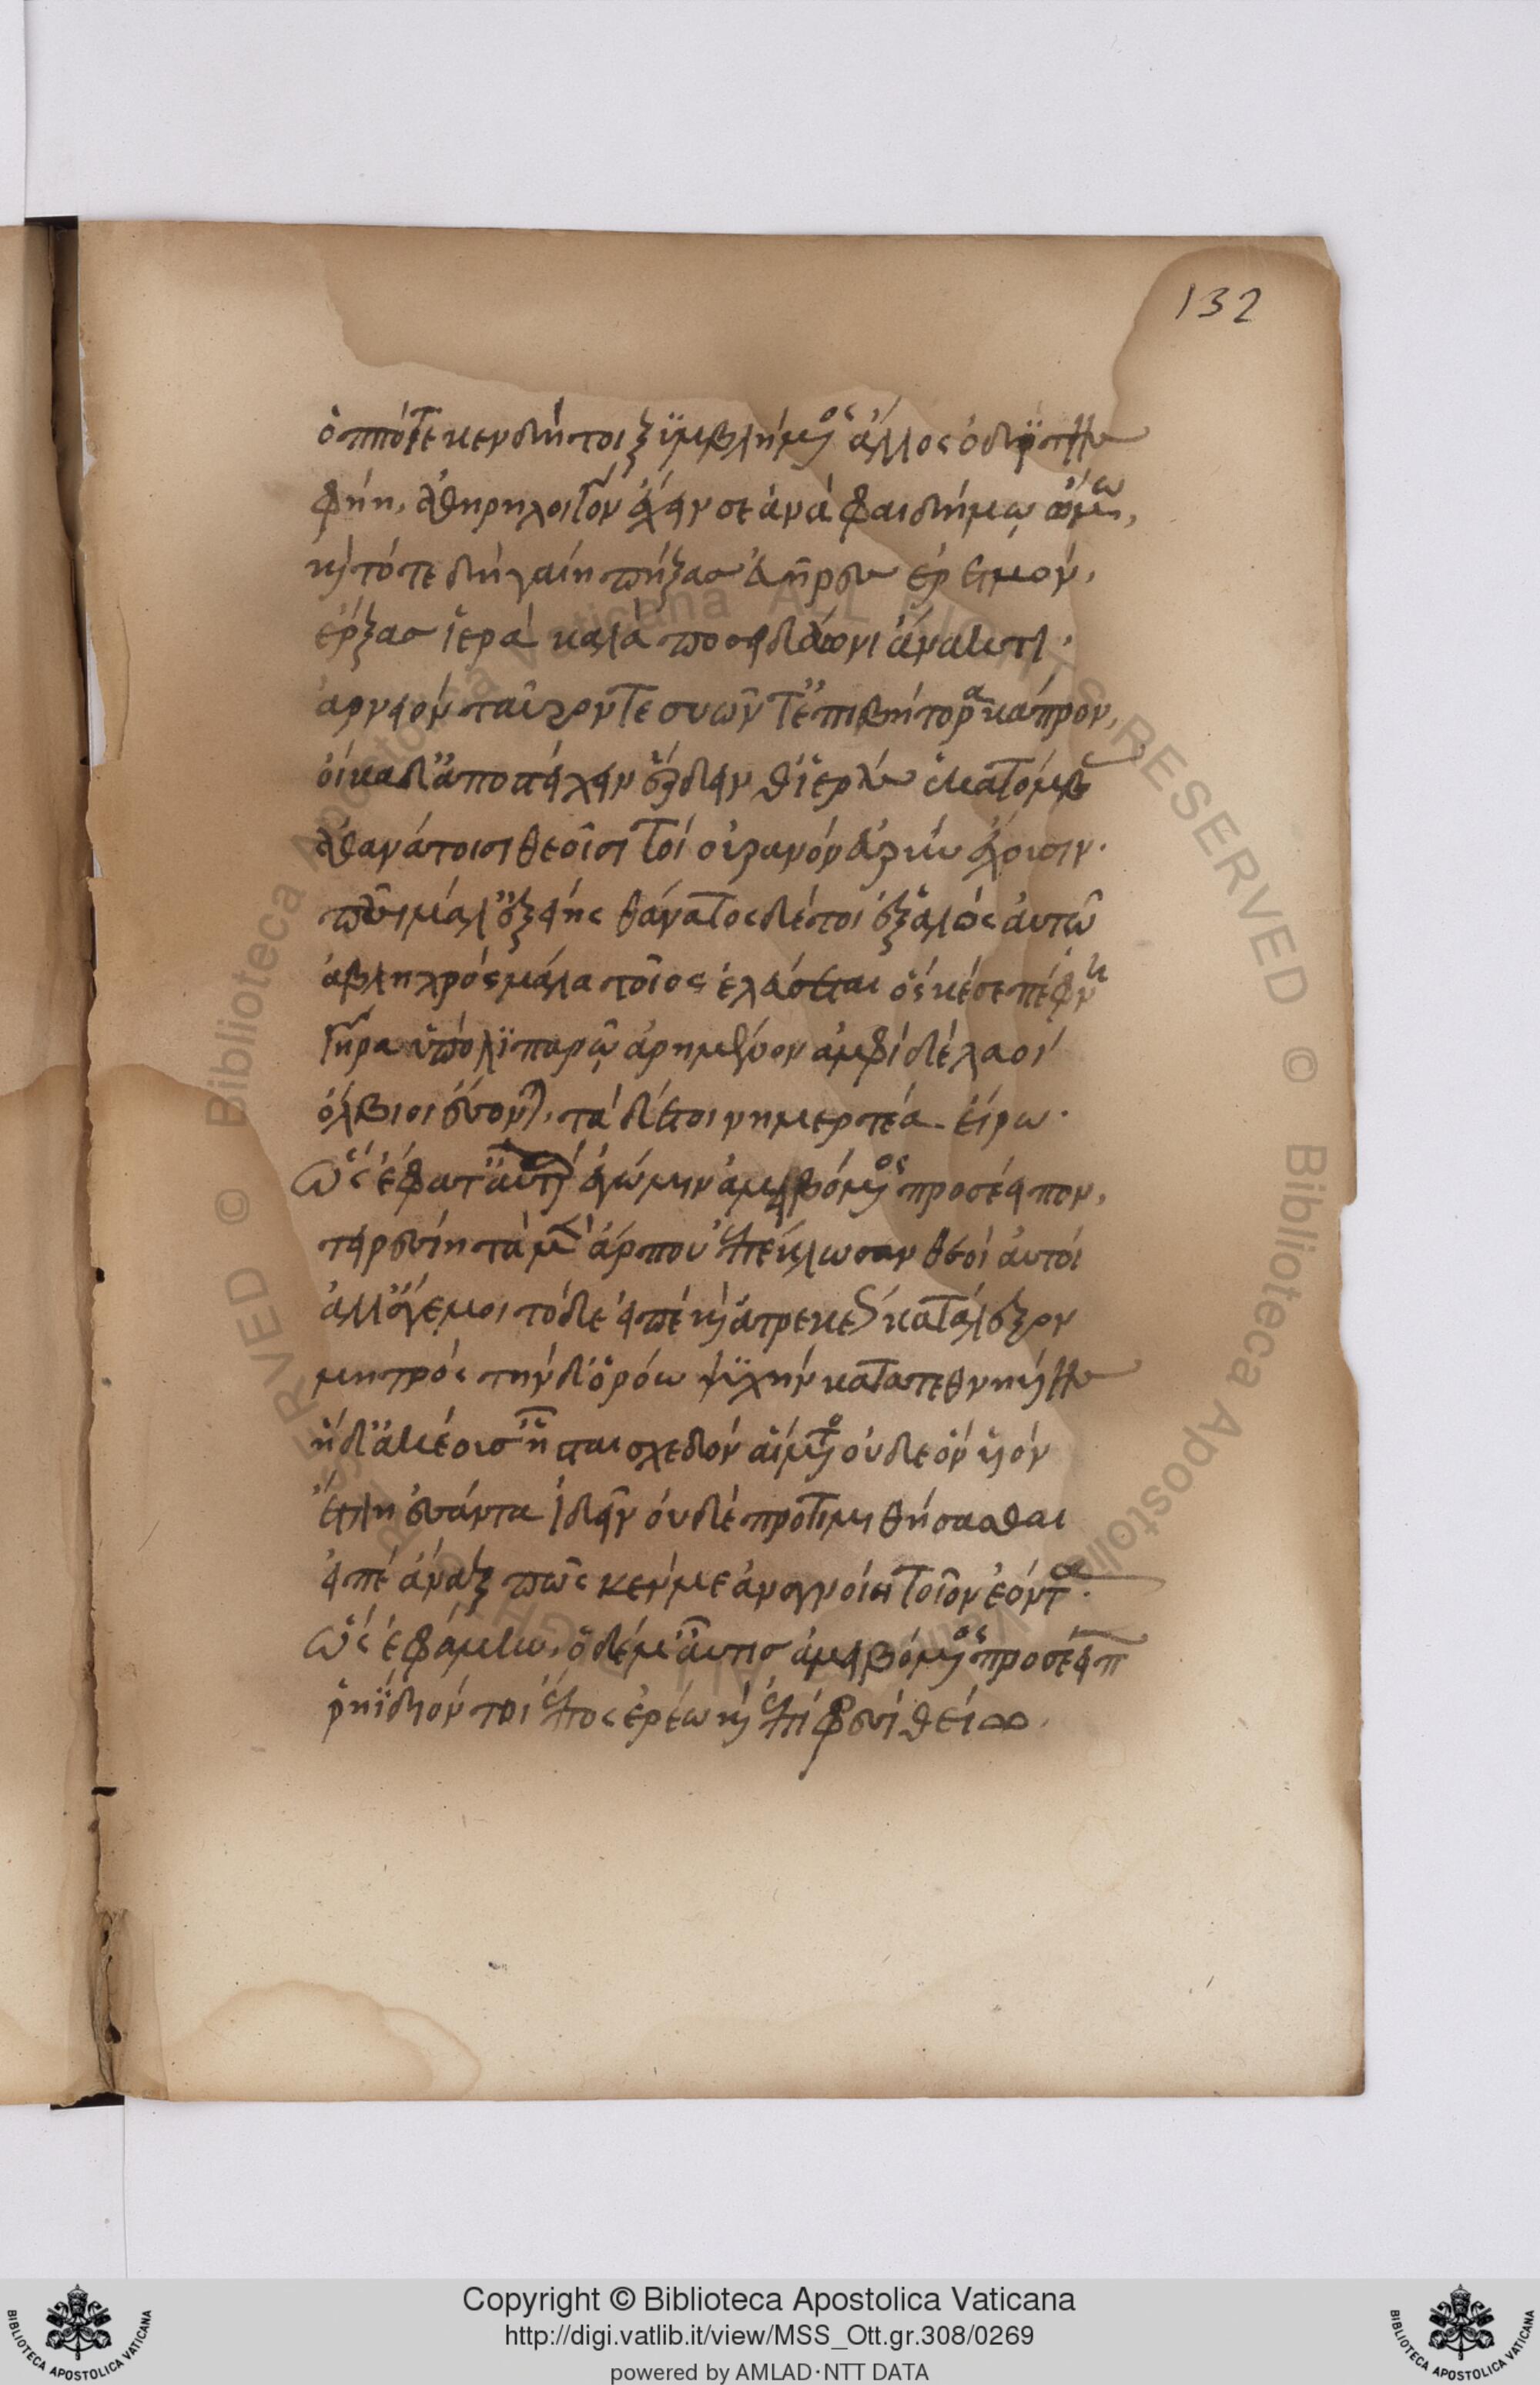 132
ὁππότε κεν δή τοι ξϋμβλήμενος ἄλλος ὁδίτης
φήῃ, ἀθηρηλοιγὸν ἔχειν σε ἀνὰ φαιδήμω ὤμω,
καὶ τότε δὴ γαίῃ πήξας ἐυῆρες ἐρετμόν,
ἔρξας ἱερὰ καλὰ ποσειδάωνι ἄνακτι·
ἀρνειὸν ταῦρον τε συῶν τ' ἐπιβήτορα κάπρον,
οἴκαδ' ἀποστείχειν ἔρδειν θ' ἱερὰς ἑκατόμβας
ἀθανάτοισι θεοῖσι τοὶ οὐρανὸν εὐρὺν ἔχουσιν·
πᾶσι μάλ' ἑξείης θάνατος δέ τοι ἐξ ἁλὸς αὐτῷ
ἀβληχρὸς μάλα τοῖος ἐλεύσεται ὅς κέ σε πέφνῃ
γήρᾳ ὕπο λϊπαρῷ ἀρημένον ἀμφὶ δὲ λαοὶ
ὄλβιοι ἔσονται, τὰ δέ τοι νημερτέα εἴρω·
ὣς ἔφατ' αὐτὰρ ἐγώ μιν ἀμειβόμενος προσέειπον,
τειρεσίη τὰ μὲν ἄρ που ἐπέκλωσαν θεοὶ αὐτοὶ
ἀλλ' ἄγε μοι τόδε εἰπὲ καὶ ἀτρεκέως κατάλεξον
μητρὸς τήν δ' ὁρόω ψϋχὴν κατατεθνηυίης
ἡ δ' ἀκέουσ' ἧσται σχεδὸν αἵματος οὐδὲ ὃν υἱὸν
ἔτλη ἐσάντα ἰδεῖν οὐδὲ προτιμυθήσασθαι
εἰπὲ ἄναξ πῶς κέν με ἀναγνοίη τοῖον ἐόντα·
ὣς ἐφάμην, ὁ δέ μ' αὖτις ἀμειβόμενος προσέειπε
ῥηΐδιόν τοι ἔπος ἐρέω καὶ ἐπὶ φρεσὶ θείω.
Copyright © Biblioteca Apostolica Vaticana
http://digi.vatlib.it/view/MSS_Ott.gr.308/0269
powered by AMLAD·NTT DATA